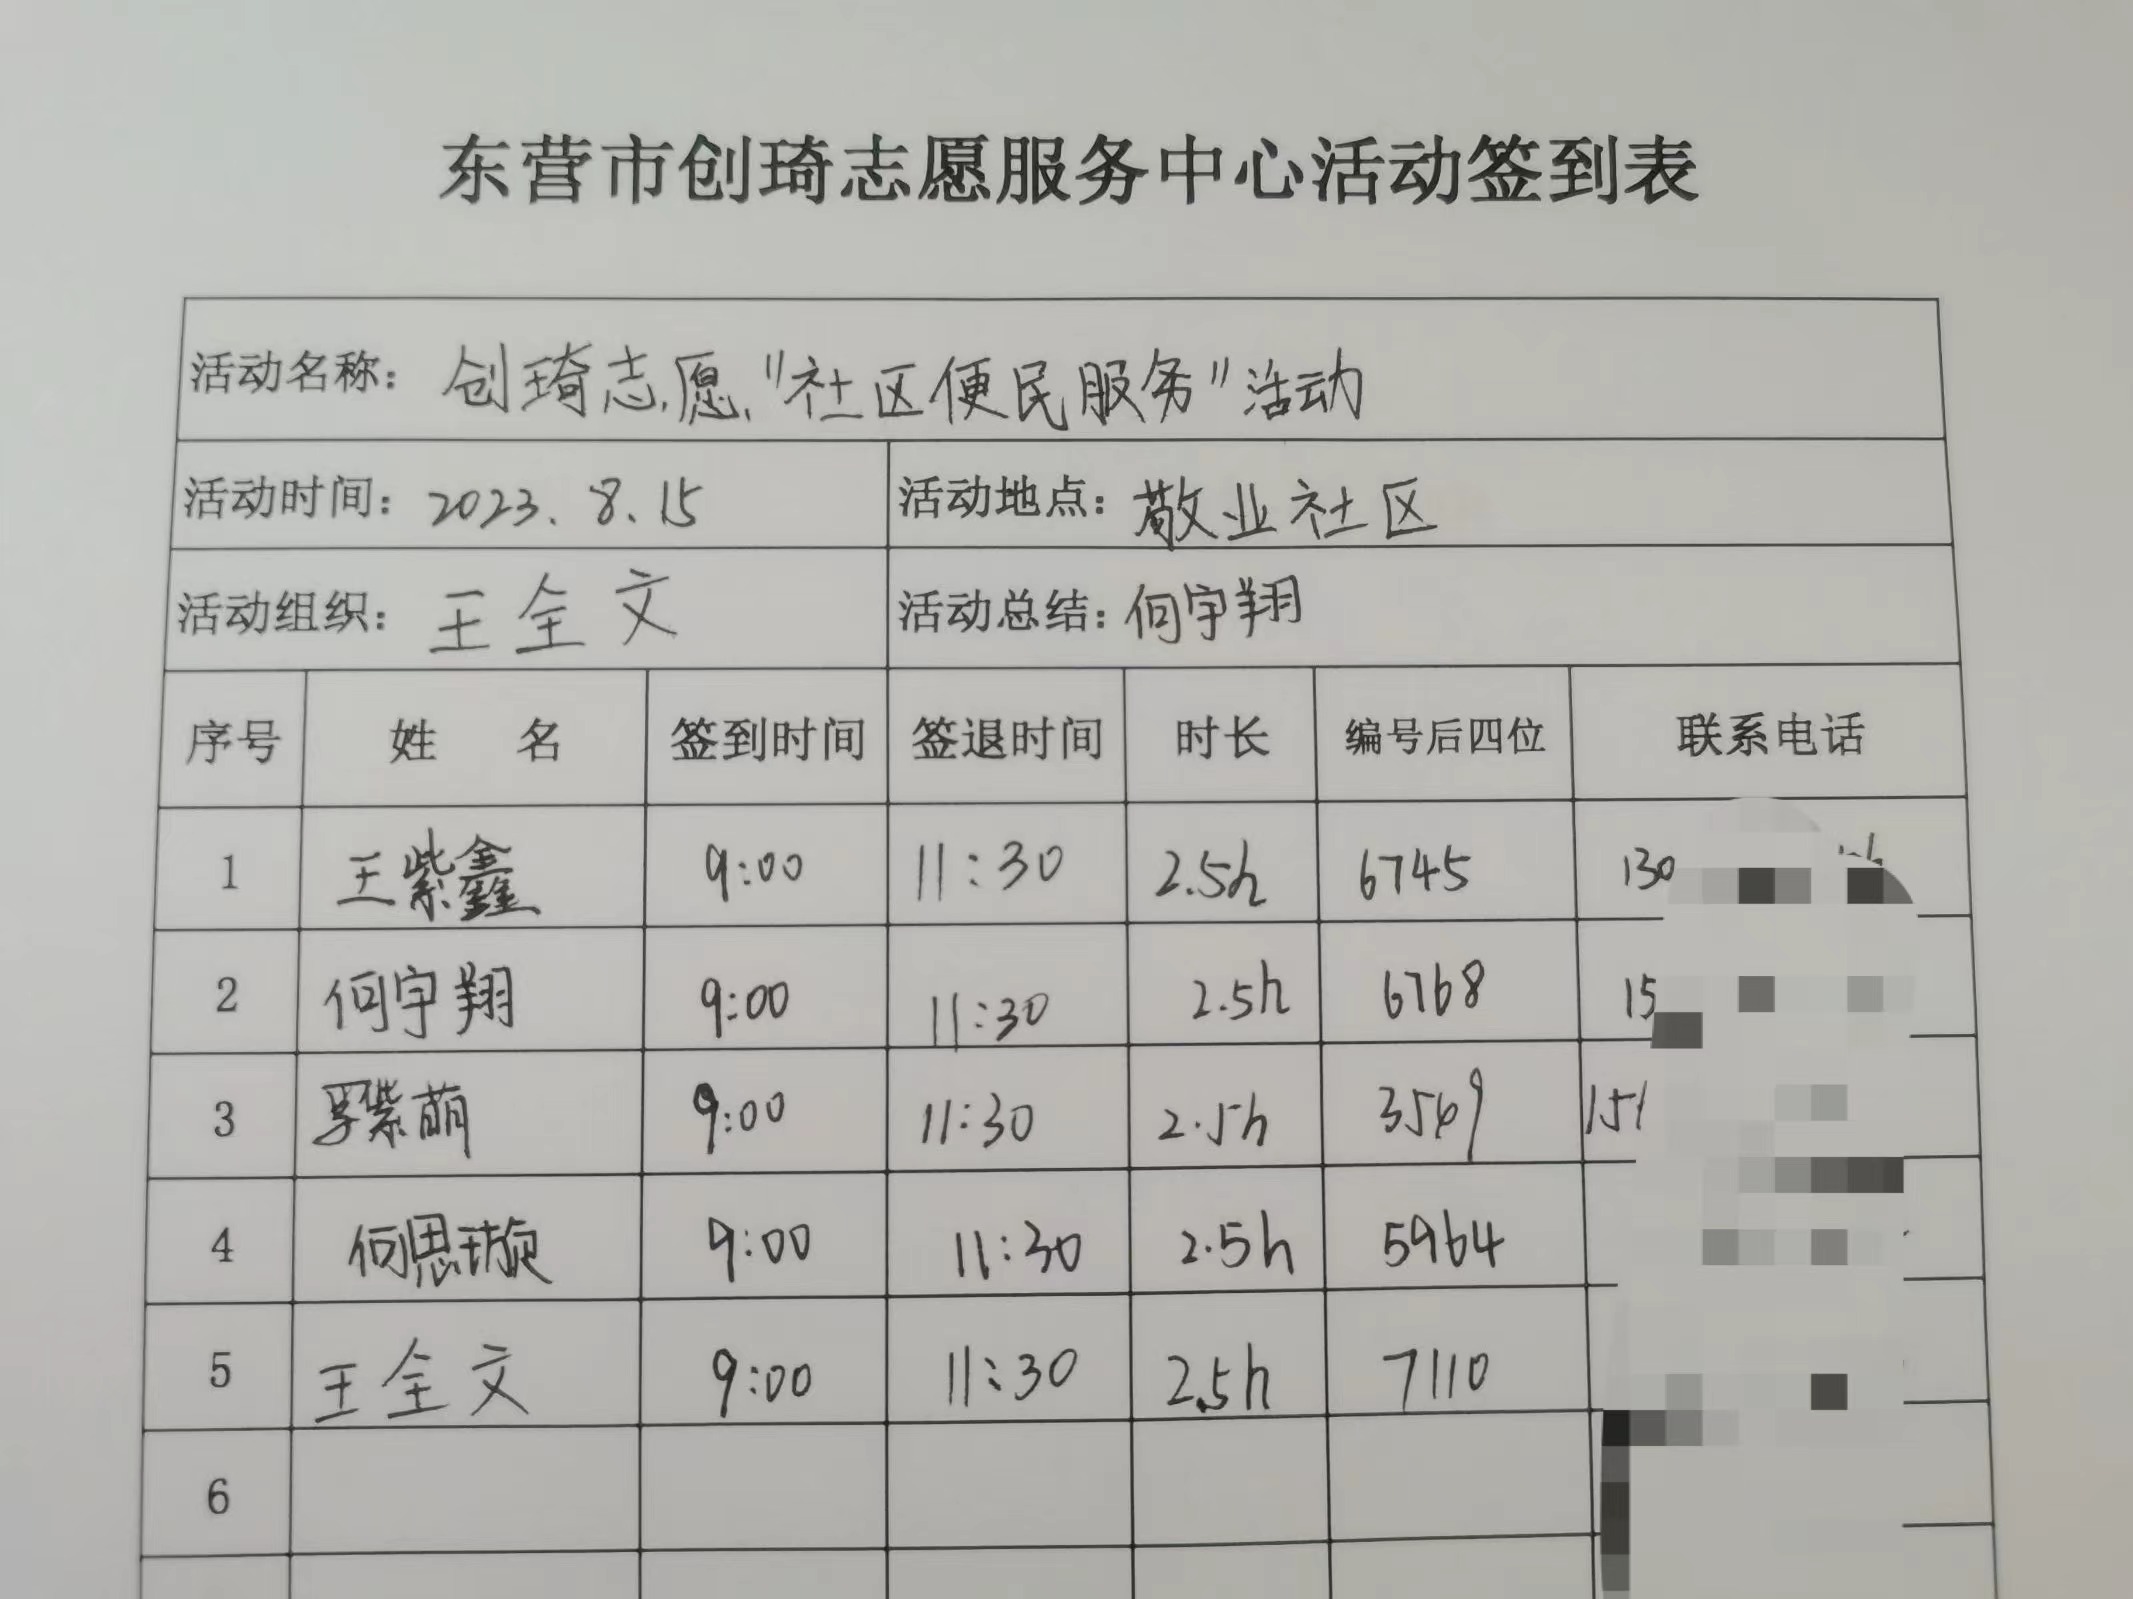 东营市创琦志愿服务中心活动签到表
活动名称：创琦志愿"社区便民服务"活动
活动时间：2023.8.15 活动地点：敬业社区
活动组织：王全文 活动总结：何宇翔
序号 姓 名 签到时间 签退时间 时长 编号后四位 联系电话
1 王紫鑫 9:00 11:30 2.5h 6745 130
2 何宇翔 9:00 11:30 2.5h 6768 15
3 紫萌 9:00 11:30 2.5h 3569 151
4 何思璇 9:00 11:30 2.5h 5964
5 王全文 9:00 11:30 2.5h 7110
6